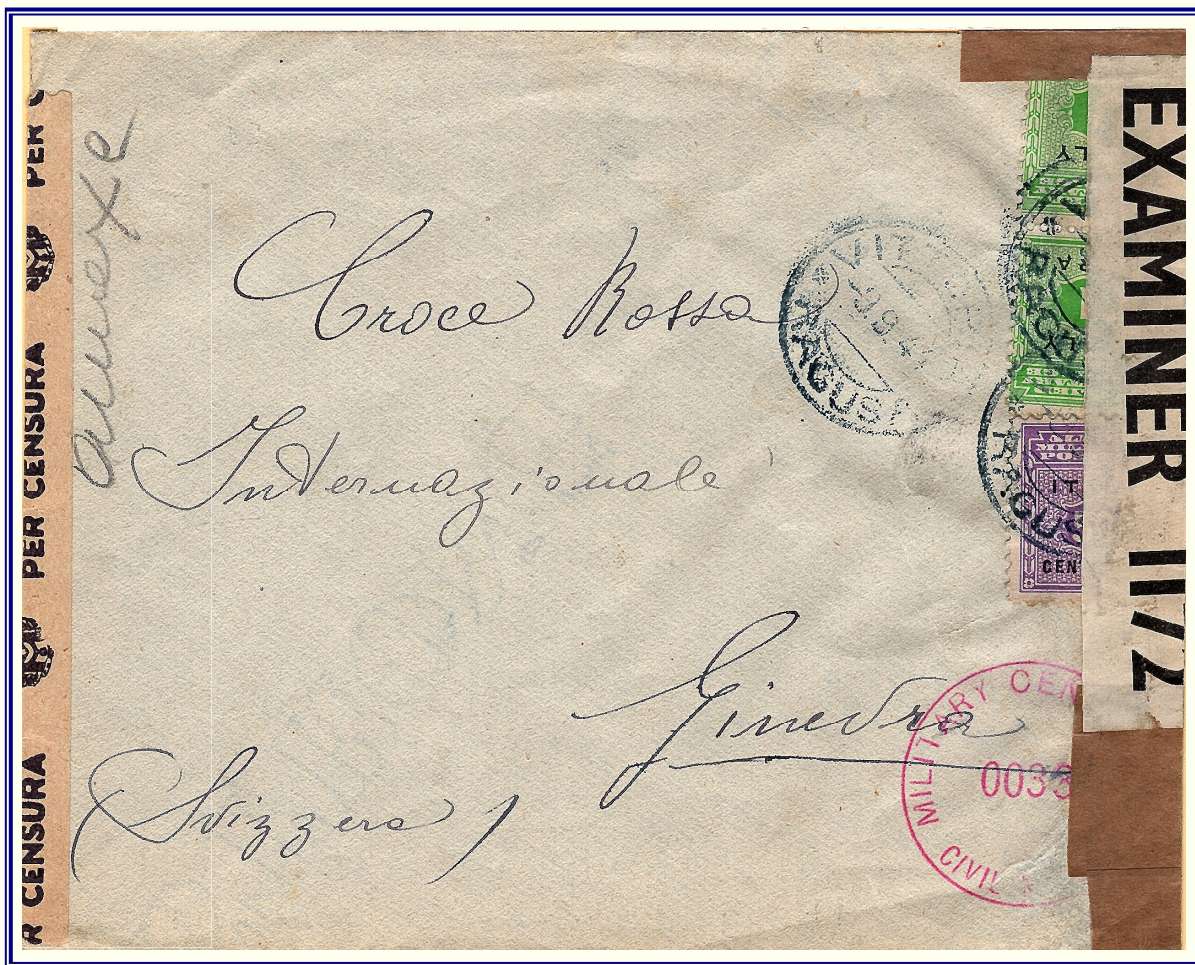 PER CENSURA
PER CENSURA
annexe
Croce Rossa
Internazionale
Ginevra
(Svizzera)
VITTORIA
RAGUSA
RAGUSA
CEN
EXAMINER 11/2
MILITARY CEN
CIVIL